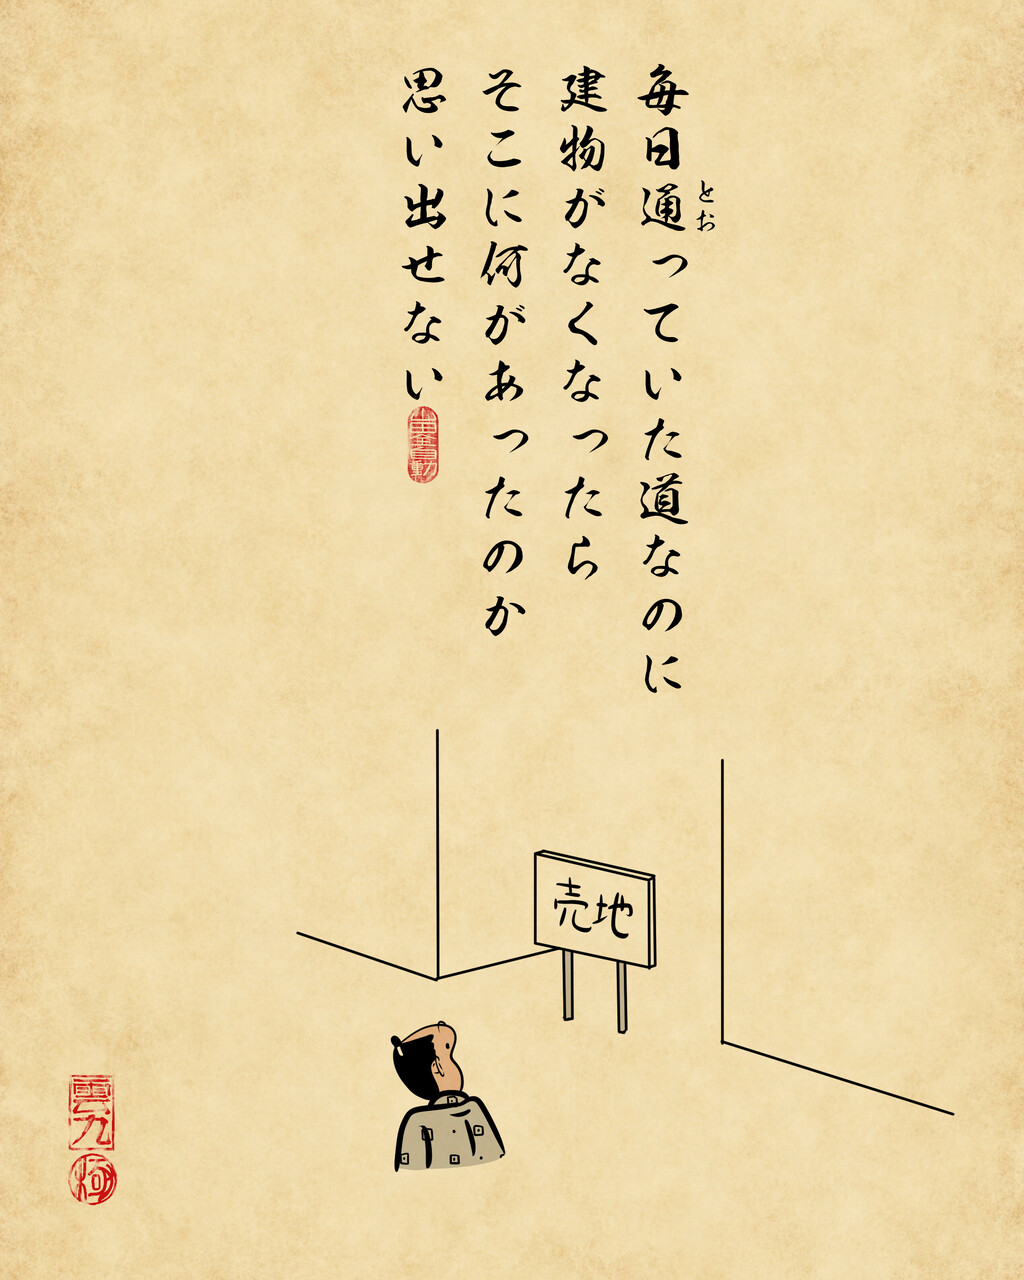 毎日通っていた道なのに
とお
建物がなくなったら
そこに何があったのか
思い出せない
売地